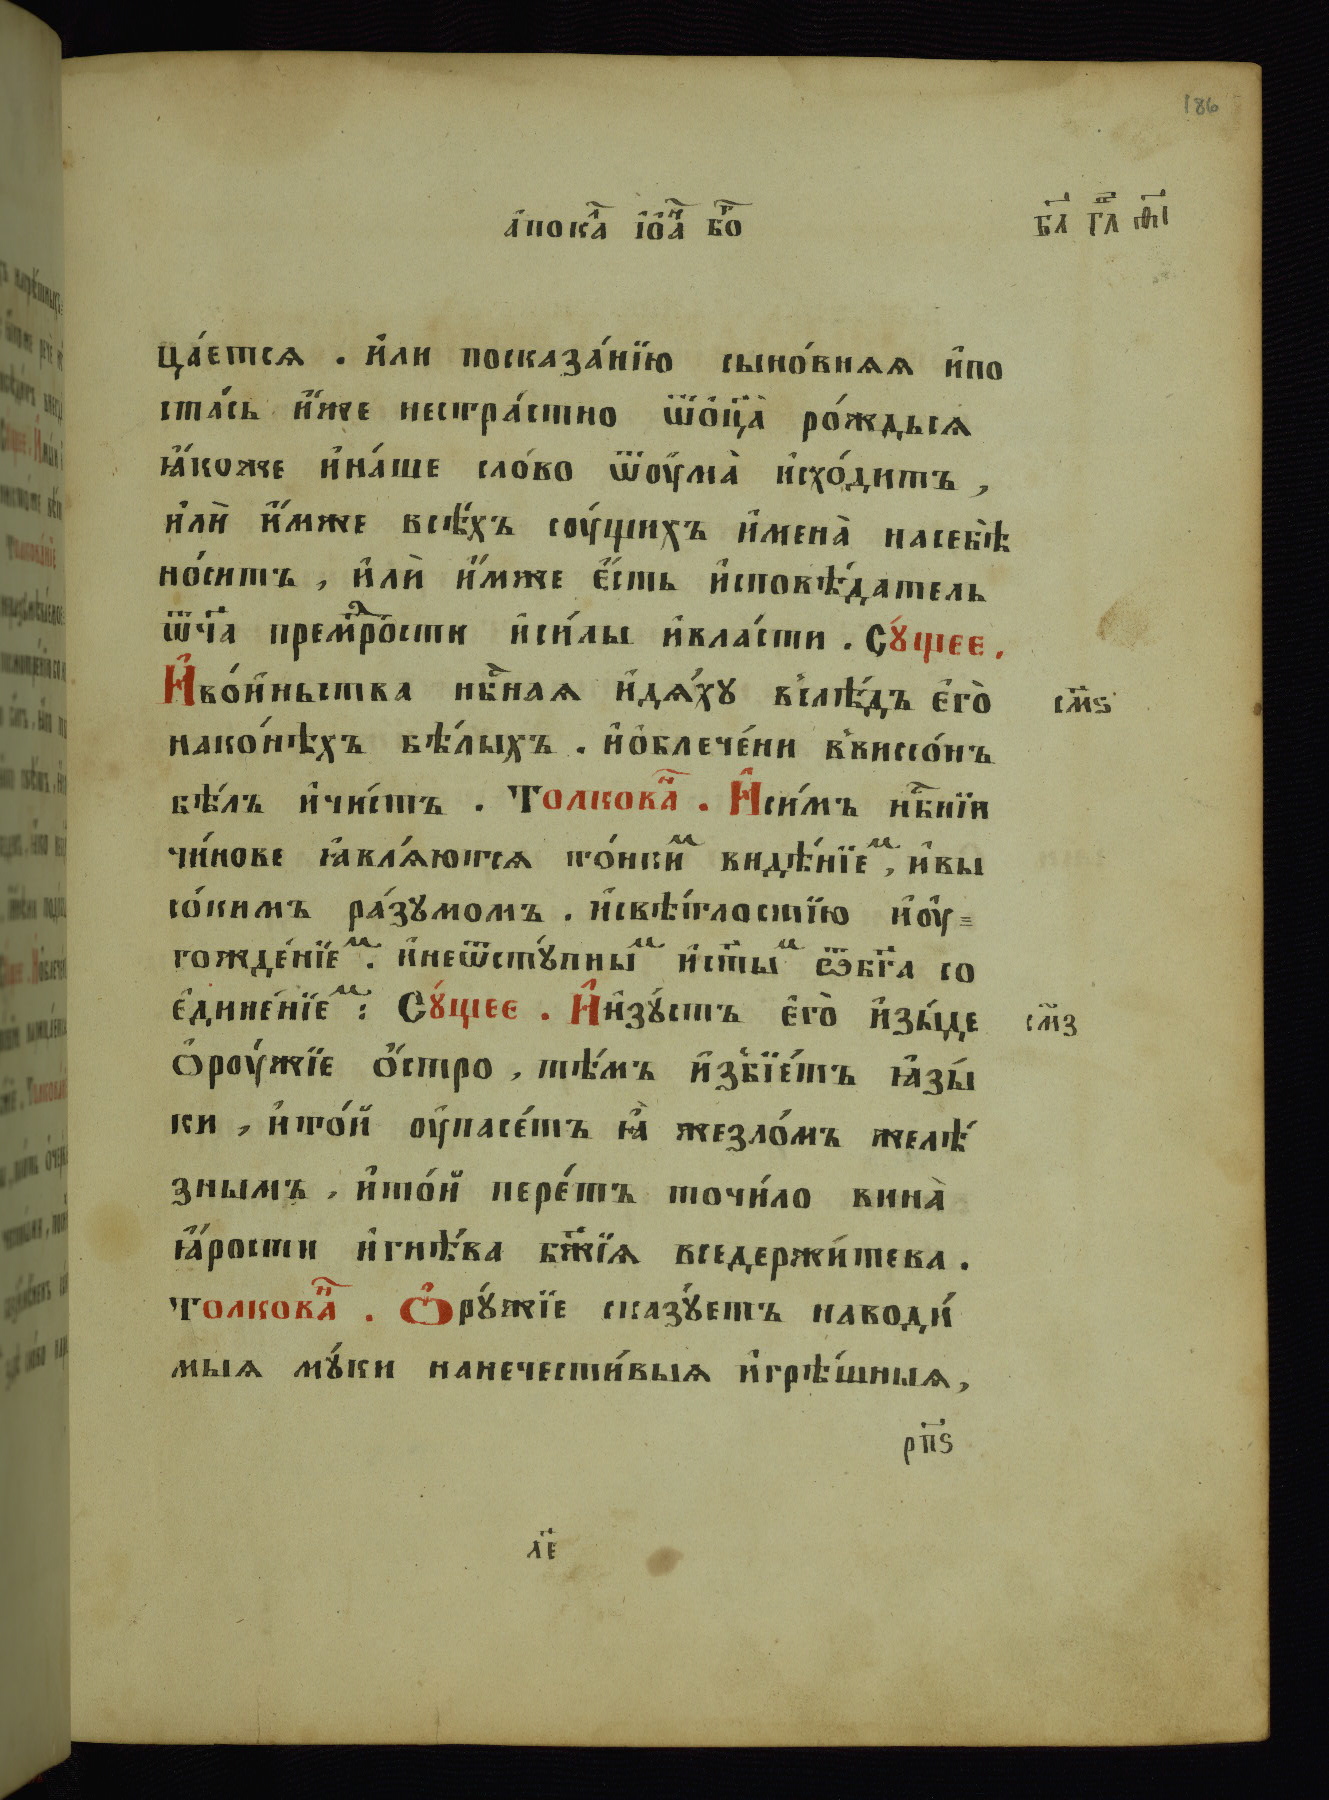 186
а҆пока́л і҆ѡ҆а́н бо́г
в҃і гл҃ н҃і
ца́етсѧ . и҆лѝ посказа́нїю сыно́внѧѧ и҆по
ста́сь и҆́же нестра́стно ѿо҆ц҃а̀ ро́ждьсѧ
ꙗ҆́коже и҆на́ше сло́во ѿоу҆ма̀ исхо́дитъ ,
и҆лѝ и҆́мже всѣ́хъ соу́щихъ и҆мена̀ насебѣ̀
но́ситъ , и҆лѝ и҆́мже є҆́сть и҆сповѣ́датель
ѿч҃а прем҃рости исѝлы ивла́сти . Сꙋ́щее .
И҆во́иньства нб҃наѧ и҆дѧ́хꙋ в̾слѣ́дъ є҆гѡ̀
нако́нѣхъ бѣ́лыхъ . и҆о҆блече́ни в̾виссо́нъ
бѣ́лъ и҆чи́стъ . Толкова́н . И҆си́мъ нб҃нїи
чи́нове ꙗ҆влѧ́ютсѧ то́нким видѣ́нїем , и҆вы
со́кимъ ра́зꙋмомъ . и҆свѣ́тлостїю и҆оу҆
гожде́нїем . и҆неѿстꙋ́пным и҆ст҃ым ѿбг҃а со
є҆дине́нїем : Сꙋ́щее . И҆и҆зꙋ́стъ є҆гѡ̀ и҆зы́де
ѻ҆роу́жїе ѻ҆́стро , тѣ́мъ и҆збїе́тъ ꙗ҆зы́
ки , и҆то́й оу҆пасе́тъ ꙗ҆̀ жезло́мъ желѣ́
знымъ , и҆то́й пере́тъ точи́ло вина̀
ꙗ҆́рости и҆гнѣ́ва бж҃їѧ вседержи́тева .
Толкова́н . Ѻ҆рꙋ́жїе сказꙋ́етъ наводи́
мыѧ мꙋ́ки нанечести́выѧ и҆грѣ́шныѧ ,
см҃ѕ
см҃з
рп҃ѕ
л҃е